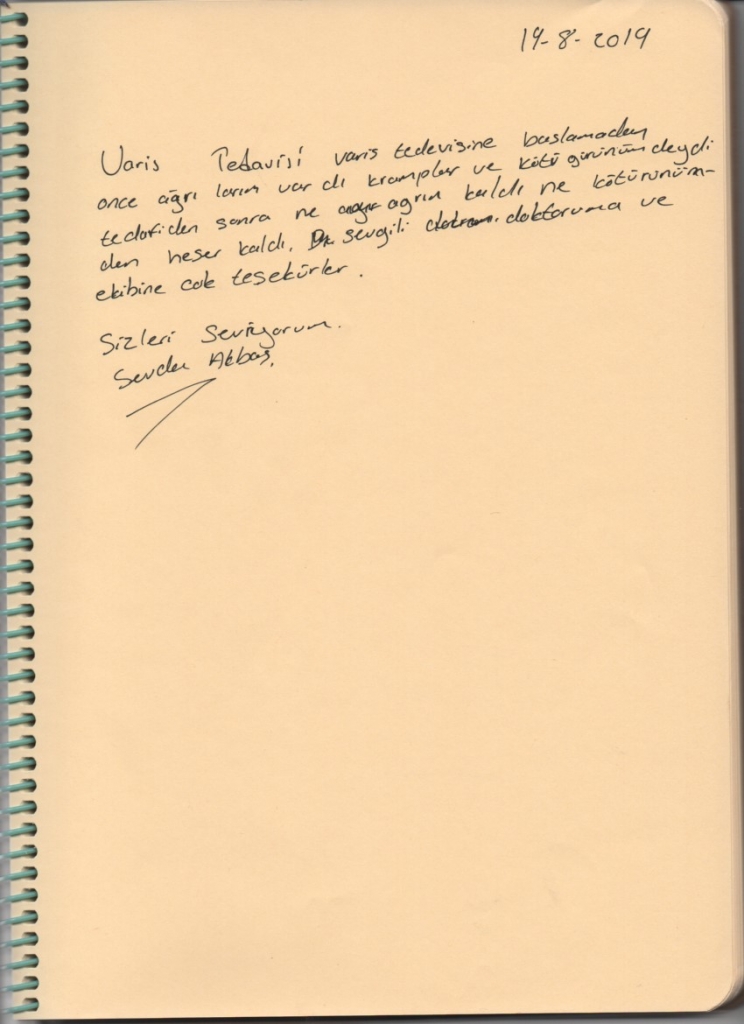 19-8-2019
Varis Tedavisi varis tedevisine baslamadan
once ağrı larım var dı kramplar ve kötü görünüm deydi
tedaviden sonra ne agrım kaldı ne kötürünüm-
den heser kaldı. sevgili doktoruma ve
ekibine cok tesekürler.
Sizleri Seviyorum.
Sevda Akbaş.